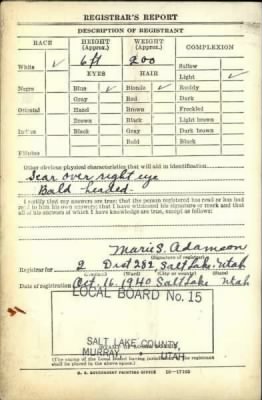 REGISTRAR'S REPORT
DESCRIPTION OF REGISTRANT
RACE HEIGHT (Approx.) WEIGHT (Approx.) COMPLEXION
White ✓ 6 ft 200 Sallow
EYES HAIR Light ✓
Negro Blue ✓ Blonde ✓ Ruddy
Gray Red Dark
Oriental Hazel Brown Freckled
Brown Black Light brown
Indian Black Gray Dark brown
Bald Black
Filipino
Other obvious physical characteristics that will aid in identification
Scar over right eye
Bald headed.
I certify that my answers are true; that the person registered has read or has had
read to him his own answers; that I have witnessed his signature or mark and that
all of his answers of which I have knowledge are true, except as follows:
Marie S. Adamson
(Signature of registrar)
Registrar for 2 Dist 282 Salt Lake Utah
(Ward) (City or county) (State)
Date of registration Oct. 16 1940 Salt Lake Utah
LOCAL BOARD No. 15
SALT LAKE COUNTY,
MURRAY, UTAH
(The stamp of the Local Board having jurisdiction of the registrant shall
be placed in the above space.)
U. S. GOVERNMENT PRINTING OFFICE